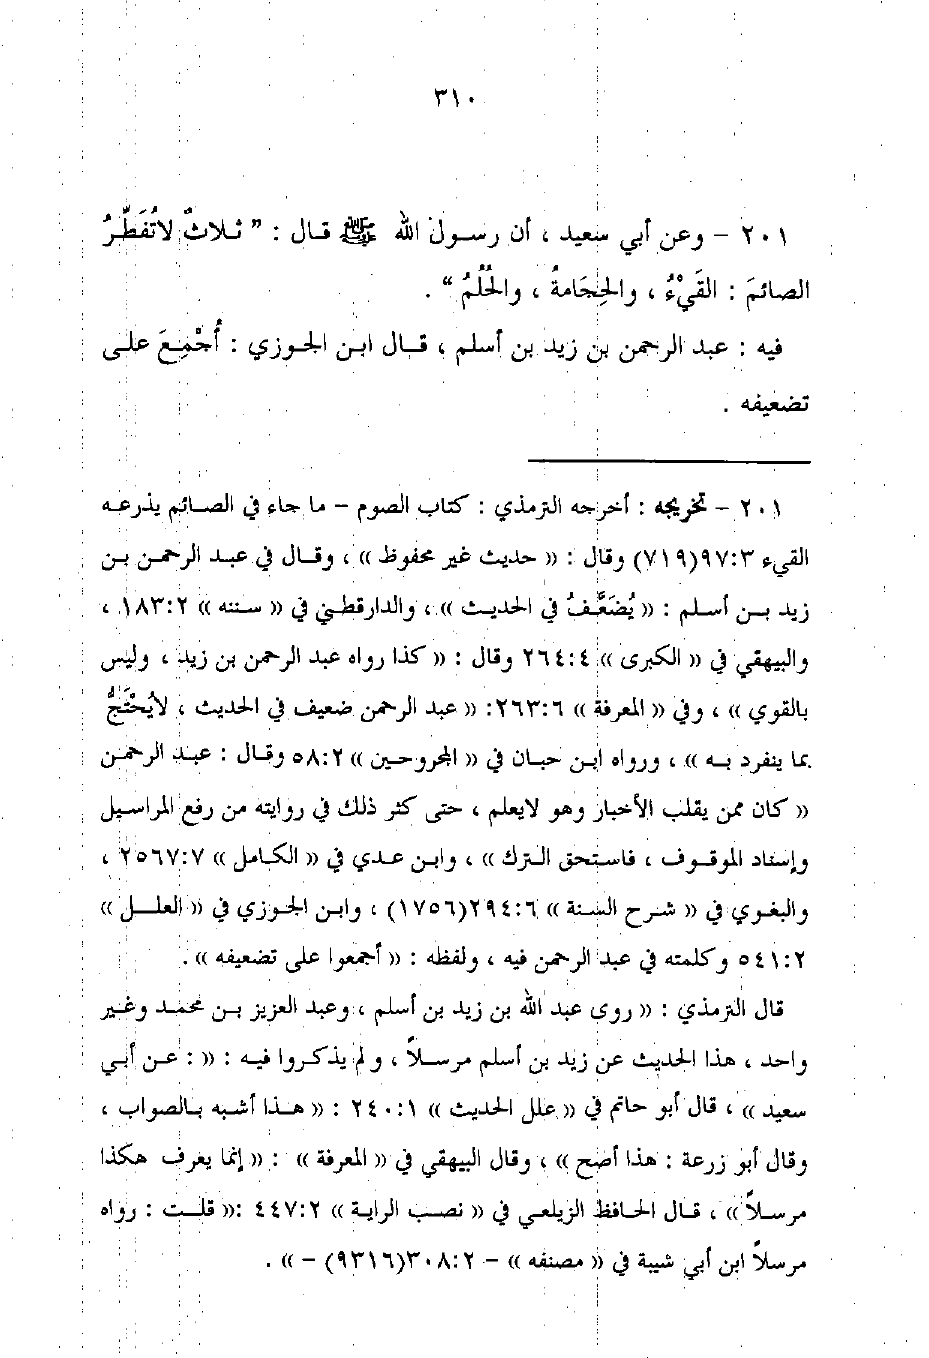 ٣١٠
٢٠١ – وعن أبي سعيد ، أن رسـول الله ﷺ قـال : ” ثـلاثٌ لاتُفَطِّرُ
الصائمَ : القَيْءُ ، والحِجَامةُ ، والحُلُمُ “ .
فيه : عبد الرحمن بن زيد بن أسلم ، قـال ابـن الجـوزي : أُجْمِعَ علـى
تضعيفه .
٢٠١ – تخريجه : أخرجه الترمذي : كتاب الصوم – ما جاء في الصـائم يذرعـه
القيء ٩٧:٣(٧١٩) وقال : « حديث غير محفوظ » ، وقـال في عبـد الرحمـن بـن
زيد بـن أسـلم : « يُضَعَّـفُ في الحديـث » ، والدارقطـني في « سـننه » ١٨٣:٢ ،
والبيهقي في « الكبرى » ٢٦٤:٤ وقال : « كذا رواه عبد الرحمن بن زيد ، وليس
بالقوي » ، وفي « المعرفة » ٢٦٣:٦: « عبد الرحمن ضعيف في الحديث ، لايُحْتَجُّ
بما ينفرد بـه » ، ورواه ابـن حبـان في « المجروحـين » ٥٨:٢ وقـال : عبـد الرحمـن
« كان ممن يقلب الأخبار وهو لايعلم ، حتى كثر ذلك في روايته من رفع المراسيل
وإسناد الموقـوف ، فاسـتحق الـترك » ، وابـن عـدي في « الكـامل » ٢٥٦٧:٧ ،
والبغـوي في « شـرح السـنة » ٢٩٤:٦(١٧٥٦) ، وابن الجـوزي في « العلـل »
٥٤١:٢ وكلمته في عبد الرحمن فيه ، ولفظه : « أجمعوا على تضعيفه » .
قال الترمذي : « روى عبد الله بن زيد بن أسلم ، وعبد العزيز بـن محمـد وغـير
واحد ، هذا الحديث عن زيد بن أسلم مرسـلاً ، و لم يذكـروا فيـه : « : عـن أبي
سعيد » ، قال أبو حاتم في « علل الحديث » ٢٤٠:١ : « هـذا أشبه بـالصواب ،
وقال أبو زرعة : هذا أصح » ، وقال البيهقي في « المعرفة » : « إنما يعرف هكذا
مرسـلاً » ، قـال الحـافظ الزيلعـي في « نصـب الرايـة » ٤٤٧:٢ :« قلـت : رواه
مرسلاً ابن أبي شيبة في « مصنفه » – ٣٠٨:٢(٩٣١٦) – » .